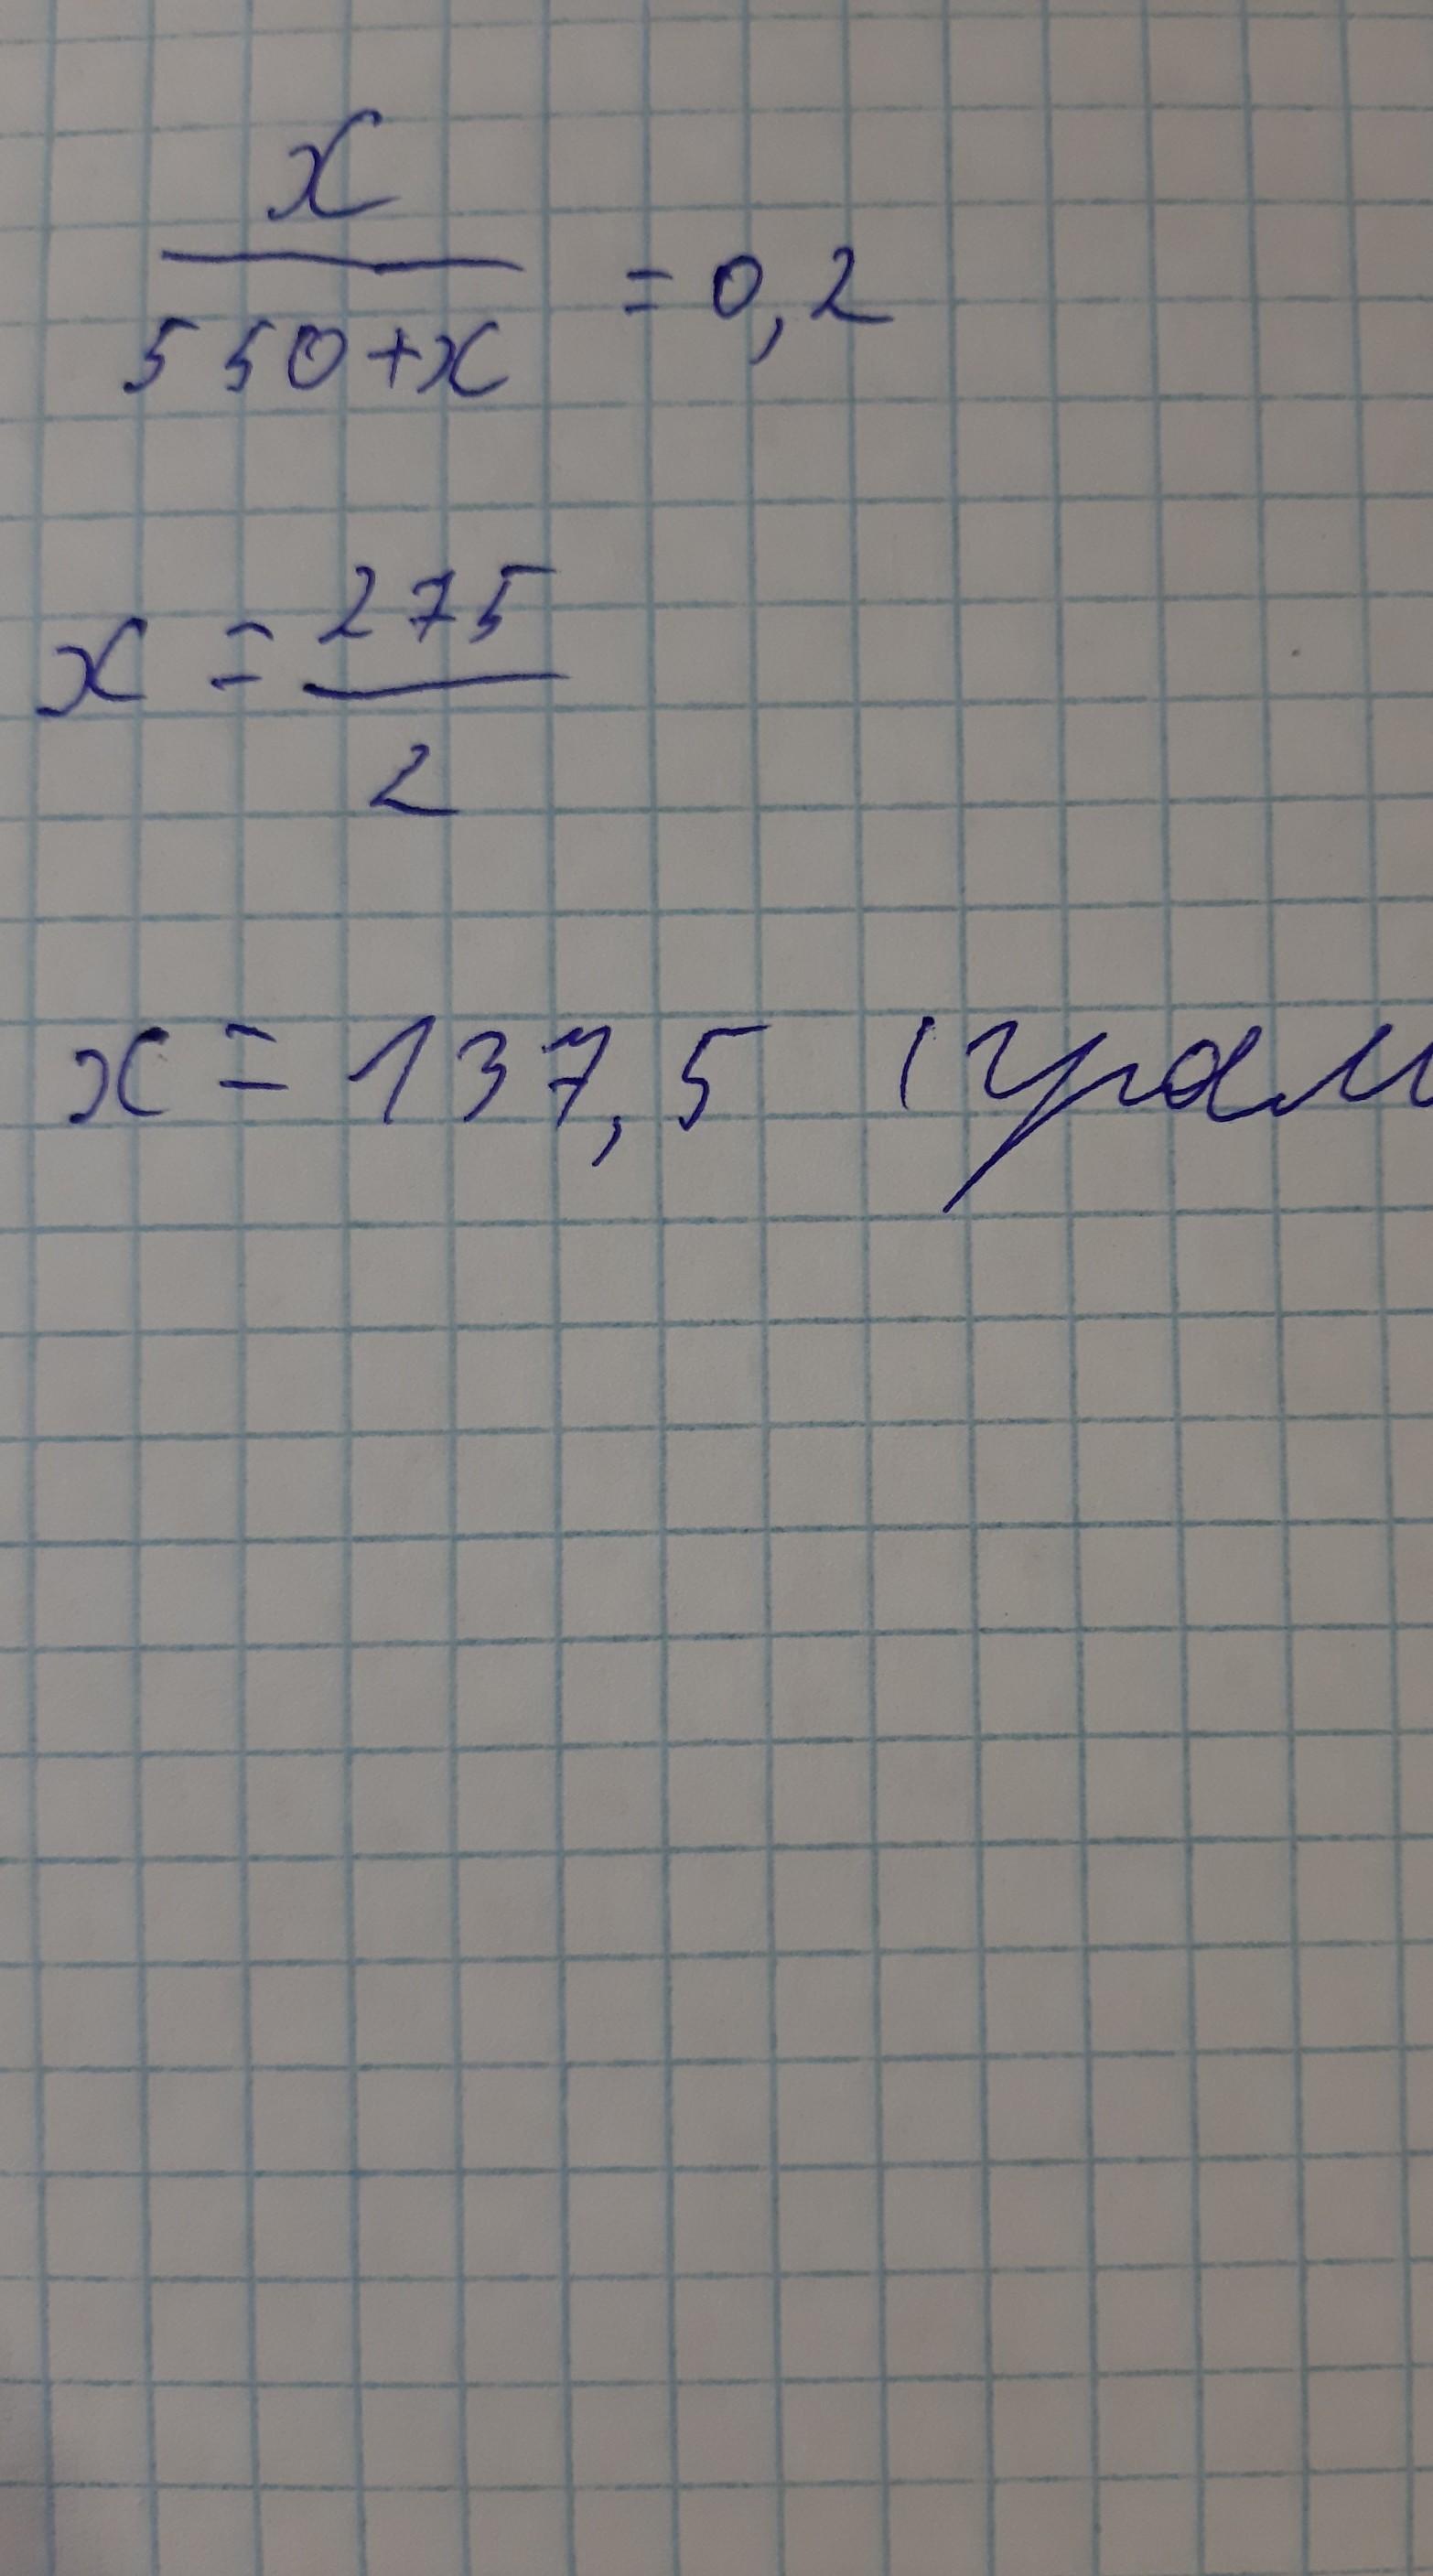 x
550+x = 0,2
x = 275
2
x = 137,5 (грам